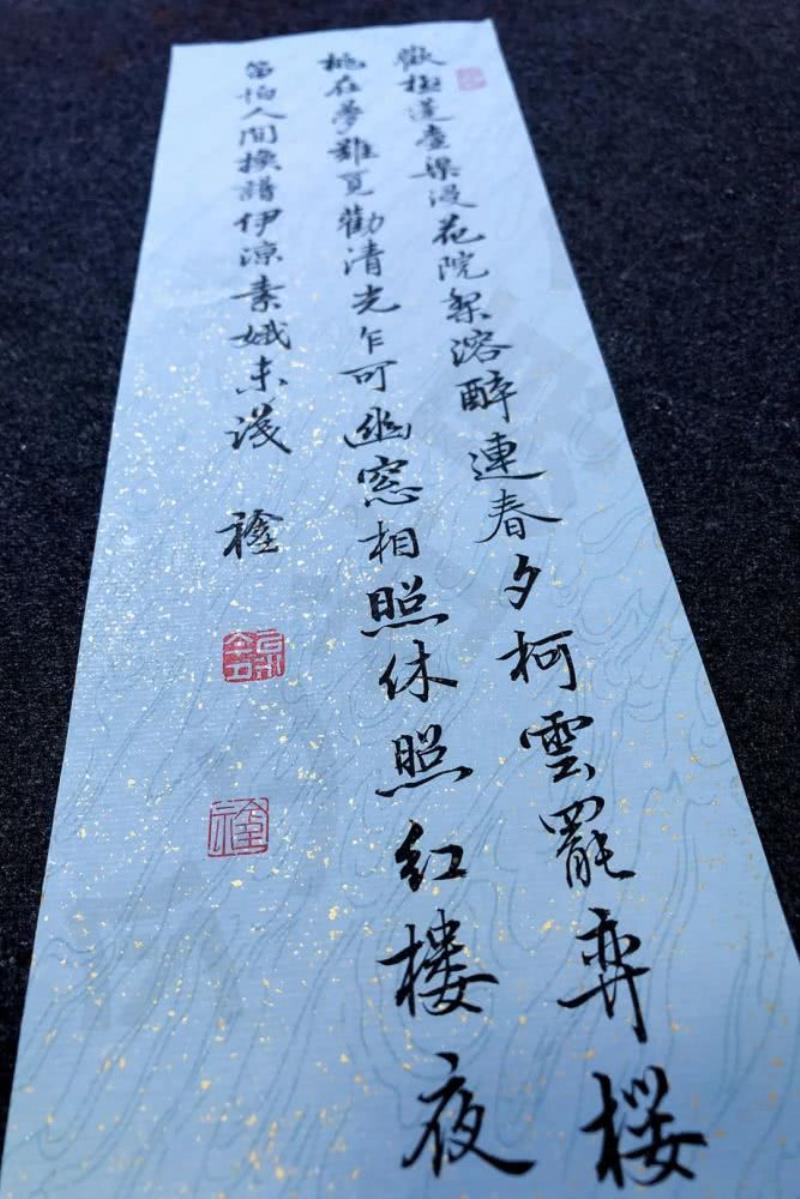 歡極蓬壺蕖浸花院梨溶醉連春夕柯雲罷弈櫻
桃在夢難覓勸清光乍可幽窓相照休照紅楼夜
笛怕人間換譜伊涼素娥未識